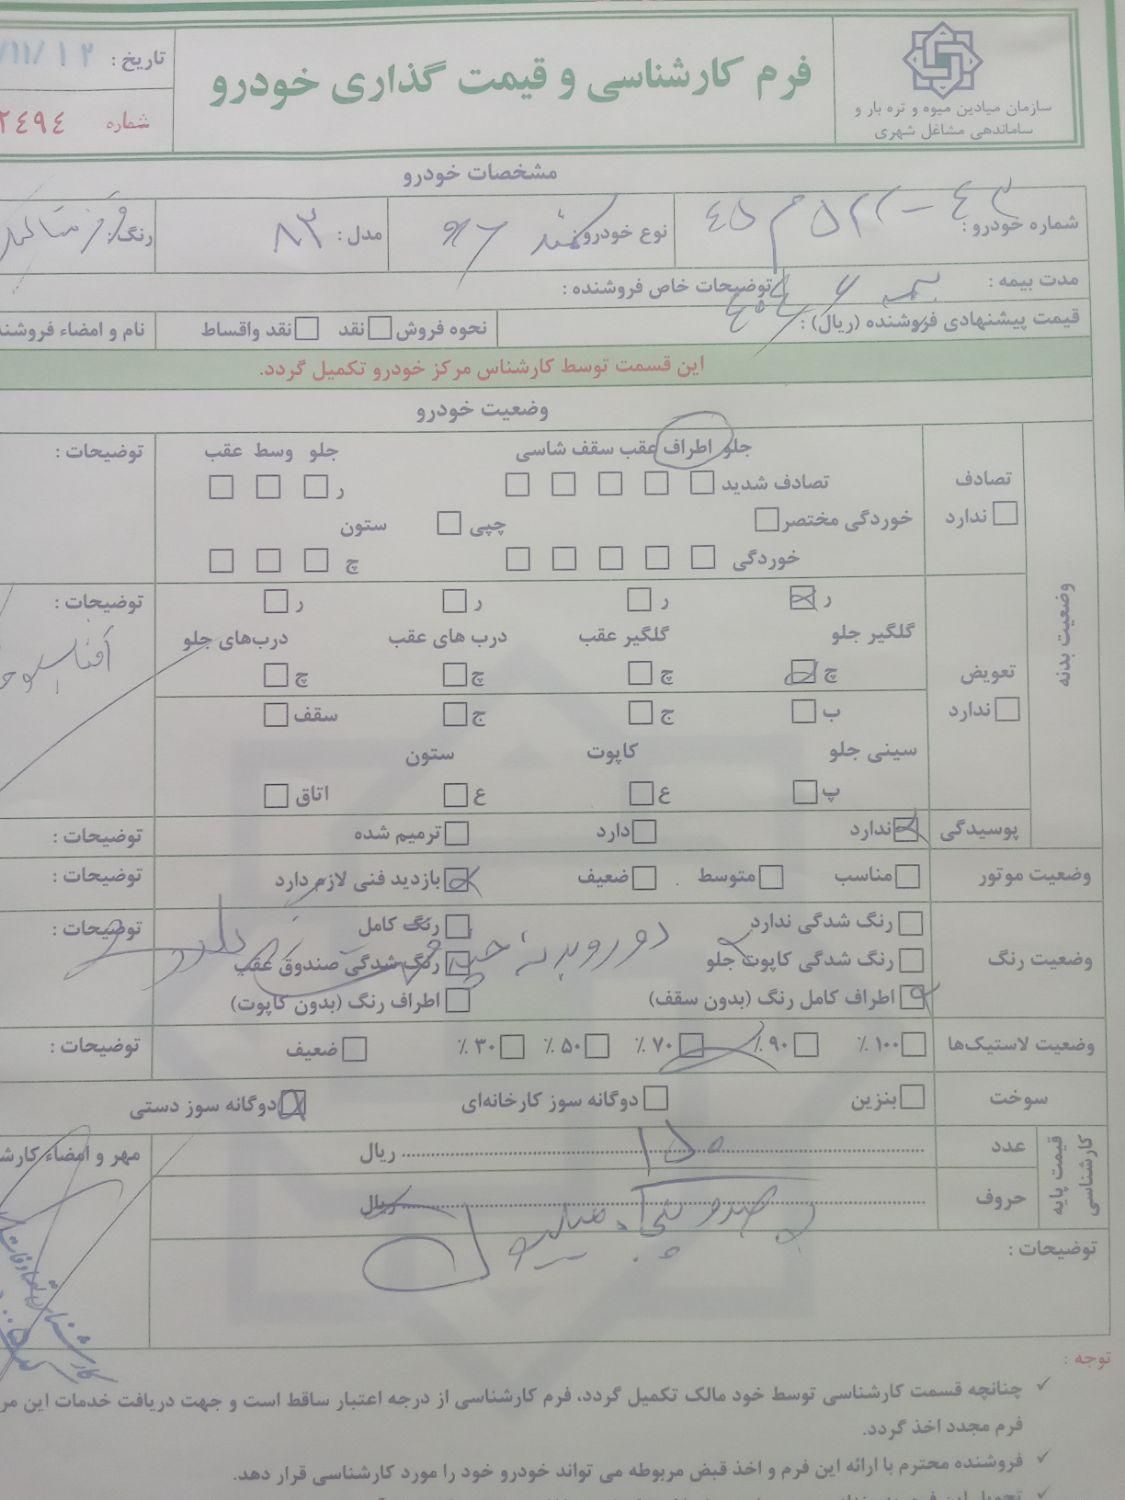 سازمان میادین میوه و تره بار و
ساماندهی مشاغل شهری
فرم کارشناسی و قیمت گذاری خودرو
تاریخ : /۱۱/۱۲
شماره ۲٤۹٤
مشخصات خودرو
شماره خودرو :
نوع خودرو :
مدل : ۸۳
رنگ :
مدت بیمه :
توضیحات خاص فروشنده :
قیمت پیشنهادی فروشنده (ریال) :
نحوه فروش نقد نقد واقساط
نام و امضاء
این قسمت توسط کارشناس مرکز خودرو تکمیل گردد.
وضعیت خودرو
وضعیت بدنه
تصادف
ندارد
جلو اطراف عقب سقف شاسی
جلو وسط عقب
توضیحات :
تصادف شدید
ر
خوردگی مختصر
چپی
ستون
خوردگی
چ
تعویض
ندارد
ر ر ر ر
گلگیر جلو گلگیر عقب درب های عقب درب‌های جلو
چ چ چ چ
توضیحات :
ب ج ج سقف
سینی جلو کاپوت ستون
پ ع ع اتاق
پوسیدگی ندارد دارد ترمیم شده توضیحات :
وضعیت موتور مناسب متوسط ضعیف بازدید فنی لازم دارد توضیحات :
وضعیت رنگ
رنگ شدگی ندارد رنگ کامل توضیحات :
رنگ شدگی کاپوت جلو رنگ شدگی صندوق عقب
اطراف کامل رنگ (بدون سقف) اطراف رنگ (بدون کاپوت)
وضعیت لاستیک‌ها ۱۰۰ ٪ ۹۰ ٪ ۷۰ ٪ ۵۰ ٪ ۳۰ ٪ ضعیف توضیحات :
سوخت بنزین دوگانه سوز کارخانه‌ای دوگانه سوز دستی
قیمت پایه کارشناسی
عدد ۱۵۰ ریال
حروف صد و پنجاه میلیون ریال
مهر و امضاء
توضیحات :
توجه :
چنانچه قسمت کارشناسی توسط خود مالک تکمیل گردد، فرم کارشناسی از درجه اعتبار ساقط است و جهت دریافت خدمات این
فرم مجدد اخذ گردد.
فروشنده محترم با ارائه این فرم و اخذ قبض مربوطه می تواند خودرو خود را مورد کارشناسی قرار دهد.